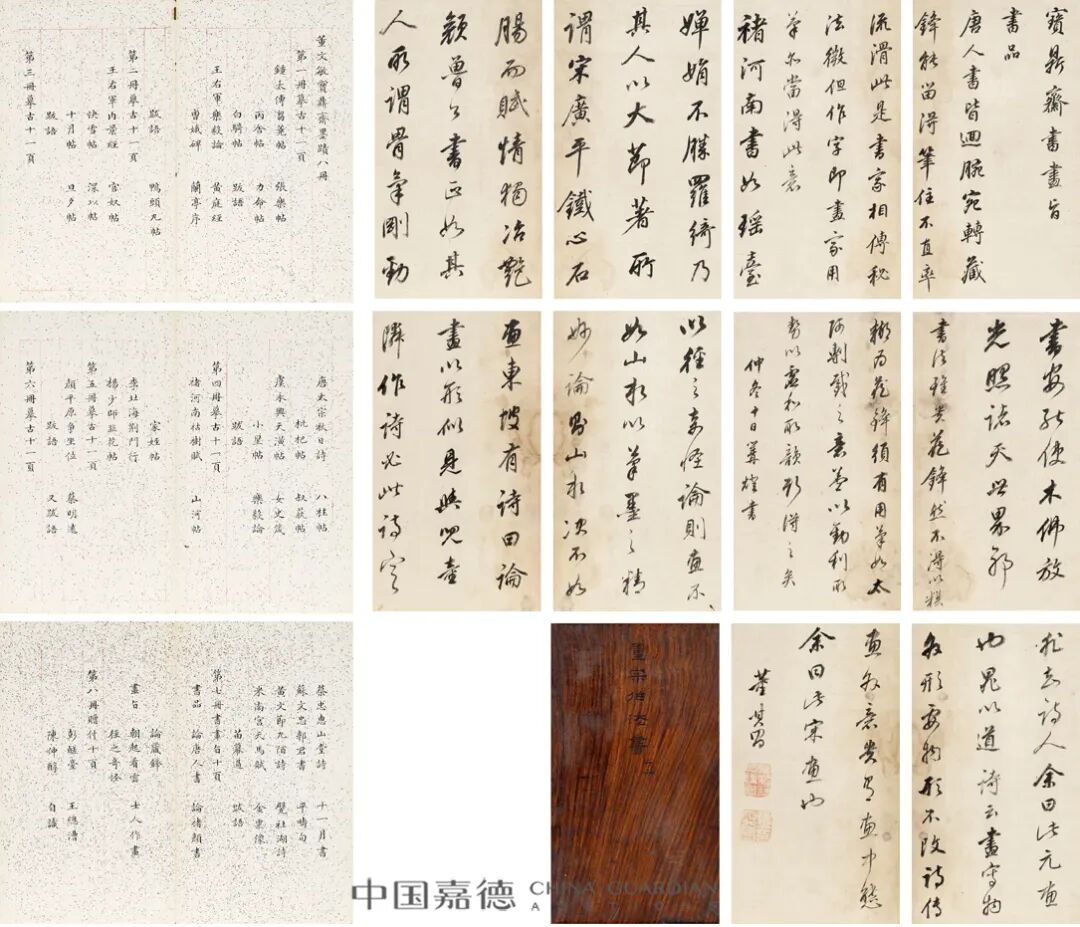 寶鼎齋書畫旨
書品
唐人書皆迴腕宛轉藏
鋒能留得筆住不直率
流滑此是書家相傳秘
法微但作字即畫家用
筆亦當得此意
褚河南書如瑤臺
嬋娟不勝羅綺乃
其人以大節著所
謂宋廣平鐵心石
腸而賦情獨冶艷
顏魯公書正如其
人所謂骨氣剛勁
董文敏寶鼎齋墨蹟八冊
第一冊摹古十一頁
鍾太傅薦季直帖 張樂帖
丙舍帖 力命帖
白騎帖 跋語
王右軍樂毅論 黃庭經
曹娥碑 蘭亭序
跋語 鴨頭丸帖
第二冊摹古十一頁
王右軍內景經 官奴帖
快雪帖 深以帖
十月帖 旦夕帖
跋語
第三冊摹古十一頁
書要能使木佛放
光照諸天世界
書法雖貴藏鋒然不得以模
糊為藏鋒須有用筆如太
阿剸截之意蓋以勁利取
勢以虛和取韻顏得之矣
仲冬十日篝燈書
以徑之奇怪論則畫不
如山水以筆墨之精
妙論則山水決不如
畫東坡有詩曰論
畫以形似見與兒童
隣作詩必此詩定
唐太宗秋日詩 八柱帖
枇杷帖 叔藝帖
虞永興天潢帖 女史箴
小星帖 樂毅論
跋語
第四冊摹古十一頁
褚河南枯樹賦 山河帖
家姪帖
李北海荊門行
楊少師韭花帖
第五冊摹古十一頁
顏平原爭坐位 蔡明遠
跋語 又跋語
第六冊摹古十一頁
非知詩人余曰此元畫
也晁以道詩云畫寫物
外形要物形不改詩傳
畫外意貴有畫中態
余曰此宋畫也
董其昌
蔡忠惠山堂詩 十一月書
蘇文忠郭君書 平疇句
黃文節九陌詩 甓社湖詩
米南宮天馬賦 金粟像
苗藁道 跋語
第七冊書畫旨十頁
書品 論唐人書 論褚顏書
論藏鋒
畫旨 朝起看雲 士人作畫
徑之奇怪
第八冊贈付十頁
彭繼蒙 王總漕
陳仲醇 自識
中国嘉德
CHINA GUARDIAN